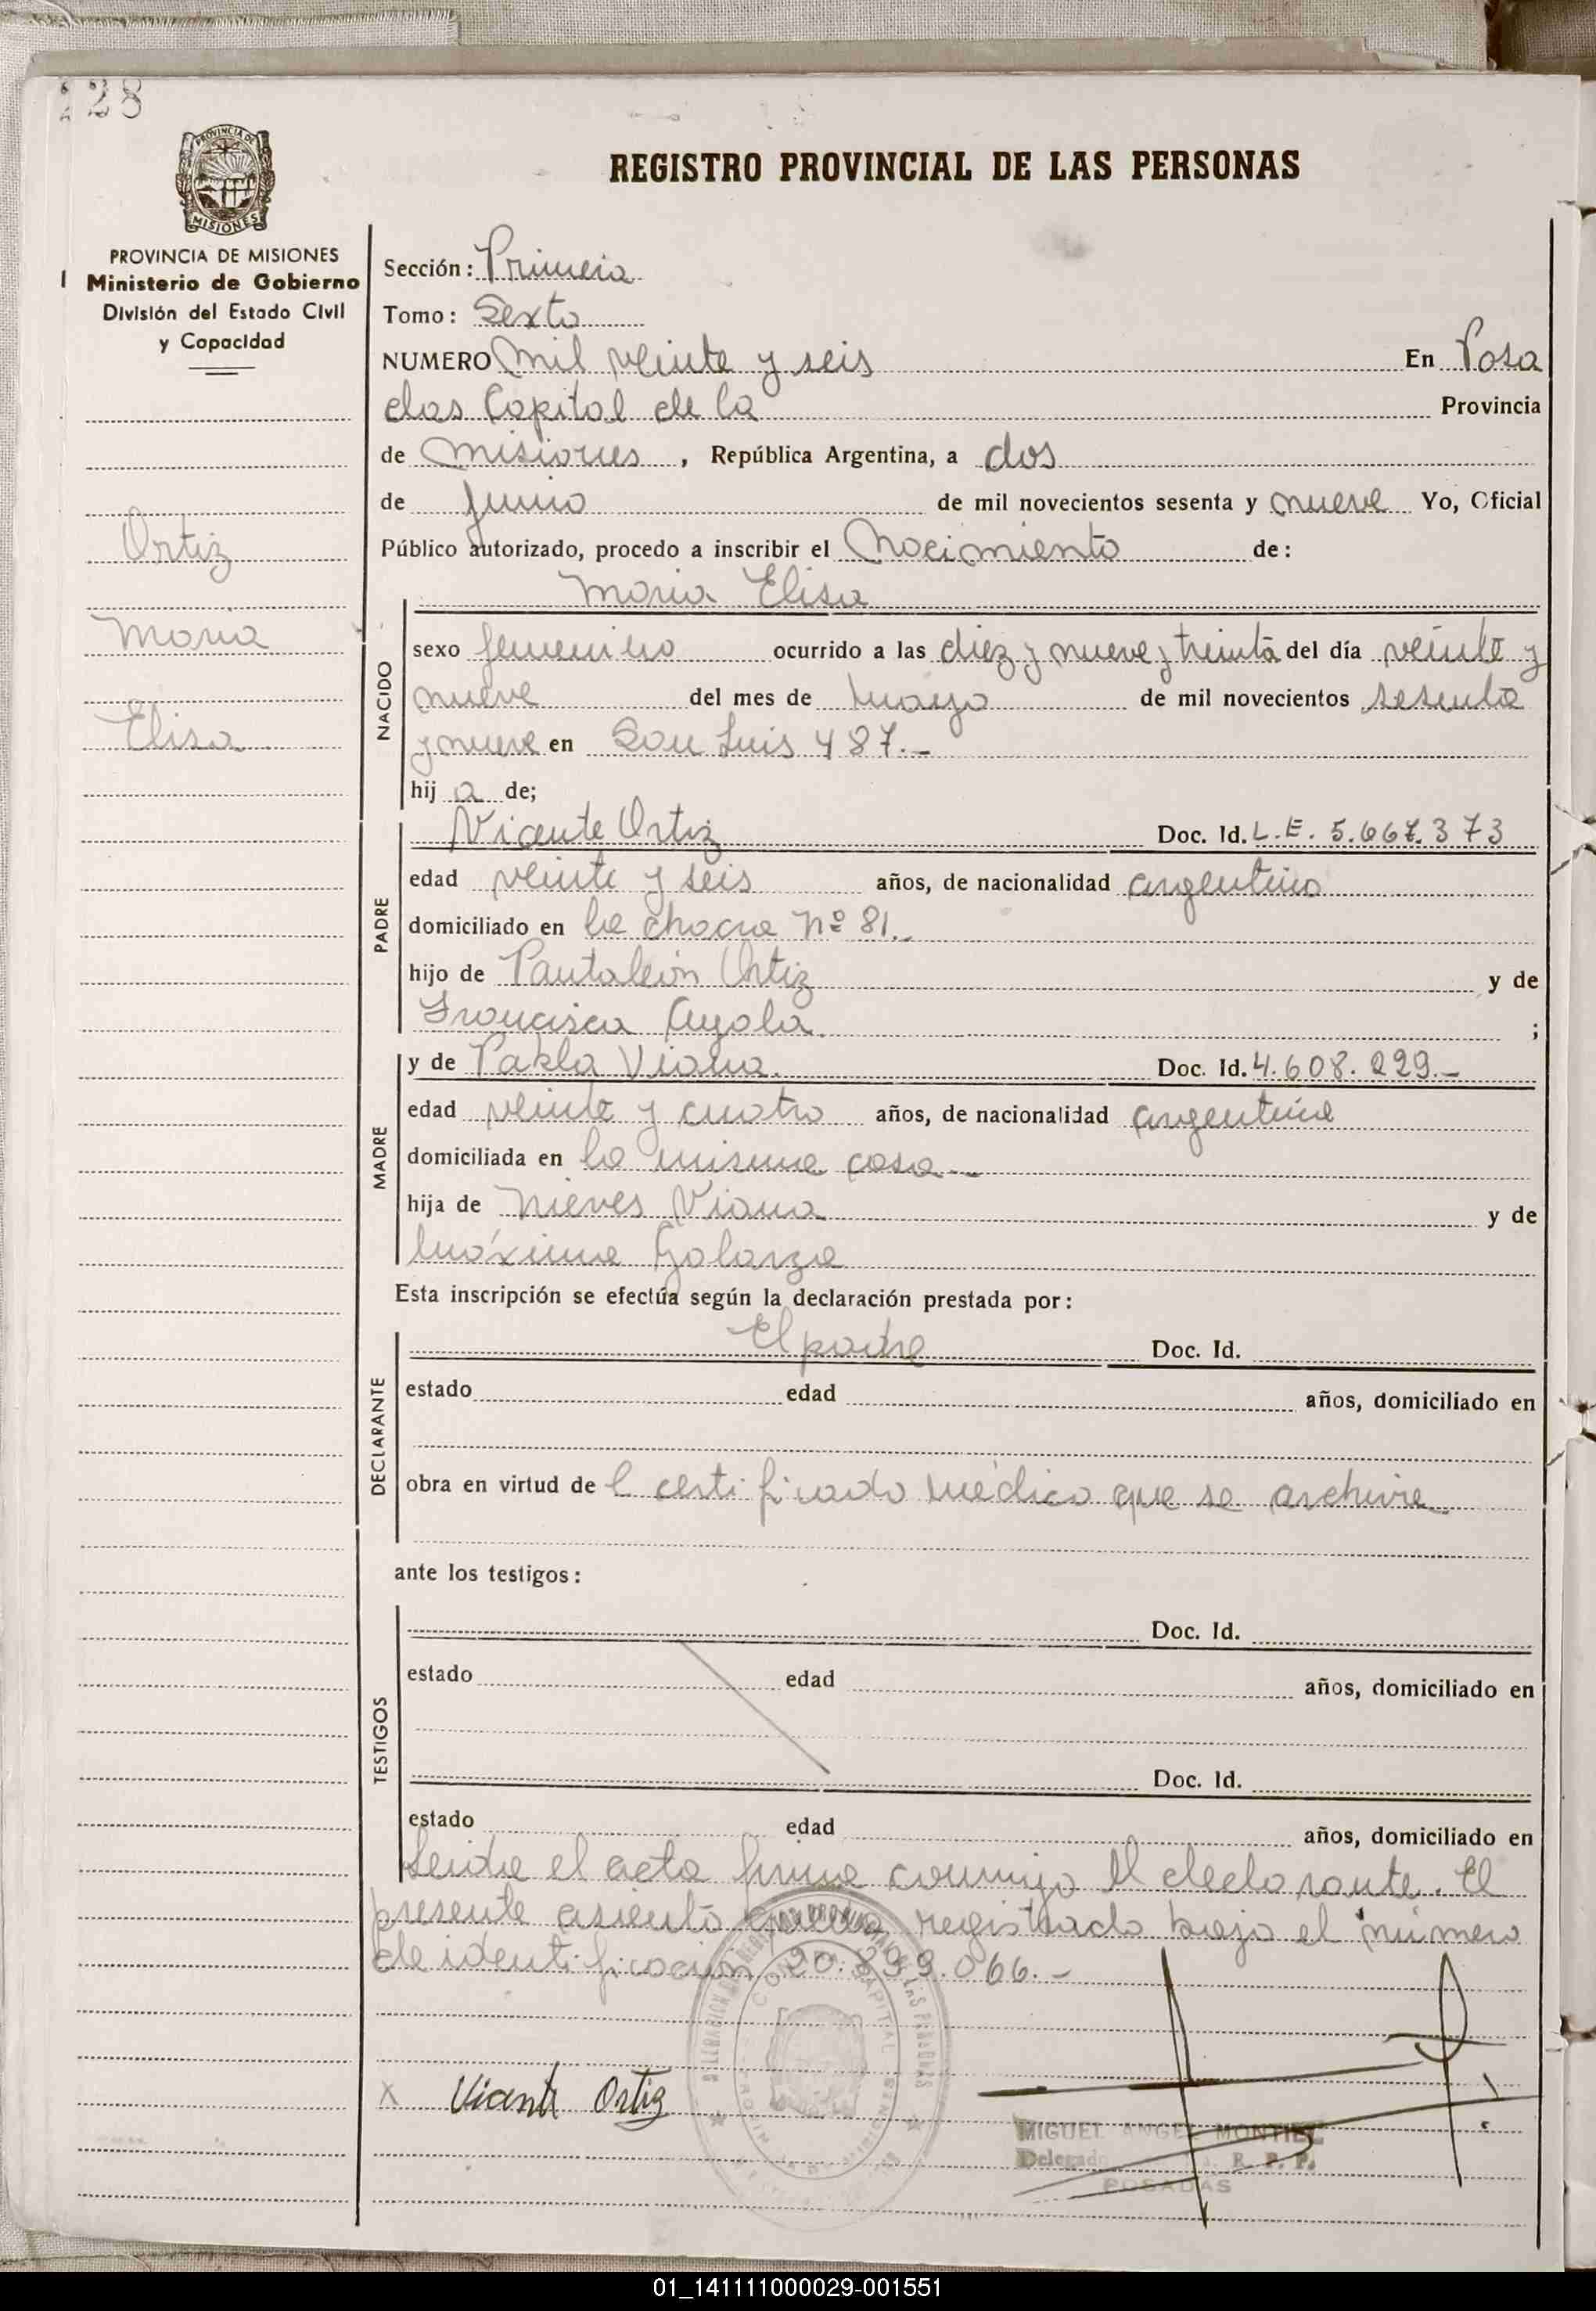 228
PROVINCIA DE
MISIONES
REGISTRO PROVINCIAL DE LAS PERSONAS
PROVINCIA DE MISIONES
Ministerio de Gobierno
División del Estado Civil
y Capacidad
Ortiz
Maria
Elisa
Sección: Primera
Tomo: Sexto
NUMERO Mil veinte y seis En Posa
das Capital de la Provincia
de Misiones, República Argentina, a dos
de Junio de mil novecientos sesenta y nueve Yo, Oficial
Público autorizado, procedo a inscribir el Nacimiento de:
Maria Elisa
NACIDO
sexo femenino ocurrido a las diez y nueve y treinta del día veinte y
nueve del mes de mayo de mil novecientos sesenta
y nueve en San Luis 487.-
hij a de;
PADRE
Vicente Ortiz Doc. Id. L.E. 5.667.373
edad veinte y seis años, de nacionalidad argentino
domiciliado en la chacra Nº 81.-
hijo de Pantaleón Ortiz y de
Francisca Ayala ;
MADRE
y de Pabla Viana. Doc. Id. 4.608.229.-
edad veinte y cuatro años, de nacionalidad argentina
domiciliada en la misma casa.-
hija de Nieves Viana y de
Máxima Galarza
Esta inscripción se efectúa según la declaración prestada por:
DECLARANTE
El padre Doc. Id.
estado edad años, domiciliado en
obra en virtud de l certificado médico que se archiva
ante los testigos:
TESTIGOS
Doc. Id.
estado edad años, domiciliado en
Doc. Id.
estado edad años, domiciliado en
Leida el acta firma conmigo el declarante. El
presente asiento queda registrado bajo el número
de identificación 20.899.066.-
X Vicente Ortiz
MIGUEL ANGEL MONTIEL
Delegado R. P. P.
POSADAS
01_141111000029-001551